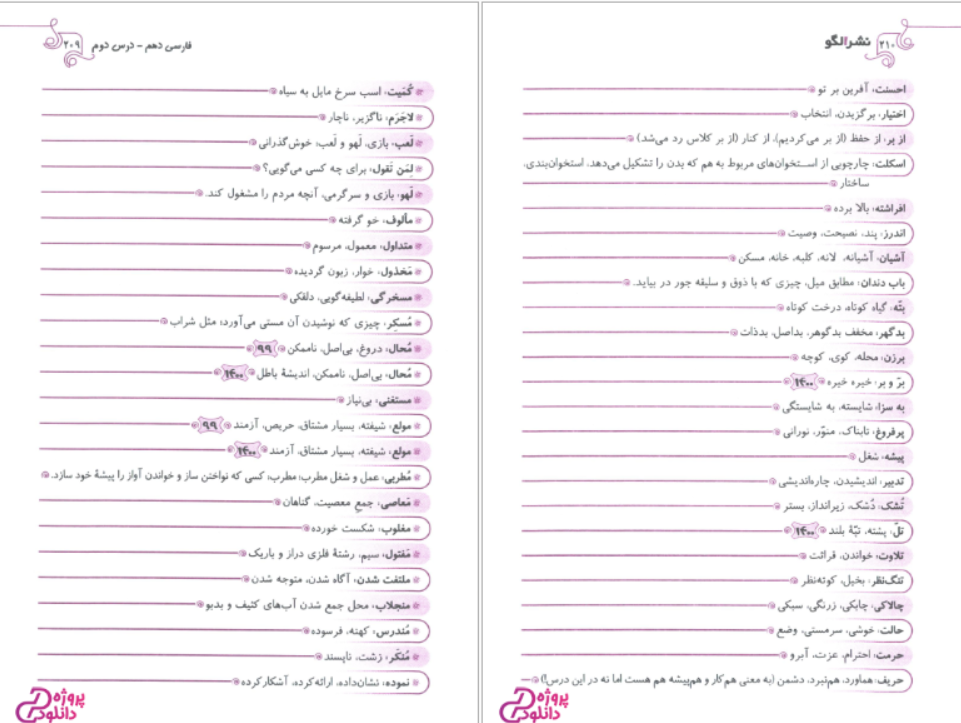 ۲۰۹
فارسی دهم - درس دوم
کُمَیت: اسب سرخ مایل به سیاه
لاجَرَم: ناگزیر، ناچار
لَعب: بازی، لَهو و لَعب: خوش‌گذرانی
لِمَن تَقول: برای چه کسی می‌گویی؟
لَهو: بازی و سرگرمی، آنچه مردم را مشغول کند.
مألوف: خو گرفته
متداول: معمول، مرسوم
مَخذول: خوار، زبون گردیده
مسخرگی: لطیفه‌گویی، دلقکی
مُسکِر: چیزی که نوشیدن آن مستی می‌آورد؛ مثل شراب
مُحال: دروغ، بی‌اصل، ناممکن ۹۹
مُحال: بی‌اصل، ناممکن، اندیشهٔ باطل ۱۴۰۰
مستغنی: بی‌نیاز
مولع: شیفته، بسیار مشتاق، حریص، آزمند ۹۹
مولع: شیفته، بسیار مشتاق، آزمند ۱۴۰۰
مُطربی: عمل و شغل مطرب؛ مطرب: کسی که نواختن ساز و خواندن آواز را پیشهٔ خود سازد.
مَعاصی: جمعِ معصیت، گناهان
مغلوب: شکست خورده
مَفتول: سیم، رشتهٔ فلزی دراز و باریک
ملتفت شدن: آگاه شدن، متوجه شدن
منجلاب: محل جمع شدن آب‌های کثیف و بدبو
مُندرس: کهنه، فرسوده
مُنکَر: زشت، ناپسند
نموده: نشان‌داده، ارائه‌کرده، آشکارکرده
پروژه
دانلود
۲۱۰
نشرالگو
احسنت: آفرین بر تو
اختیار: برگزیدن، انتخاب
از بر: از حفظ (از بر می‌کردیم)، از کنار (از بر کلاس رد می‌شد)
اسکلت: چارچوبی از استخوان‌های مربوط به هم که بدن را تشکیل می‌دهد، استخوان‌بندی،
ساختار
افراشته: بالا برده
اندرز: پند، نصیحت، وصیت
آشیان: آشیانه، لانه، کلبه، خانه، مسکن
باب دندان: مطابق میل، چیزی که با ذوق و سلیقه جور در بیاید.
بتّه: گیاه کوتاه، درخت کوتاه
بدگهر: مخفف بدگوهر، بداصل، بدذات
برزن: محله، کوی، کوچه
برّ و بر: خیره خیره ۱۴۰۰
به سزا: شایسته، به شایستگی
پرفروغ: تابناک، منوّر، نورانی
پیشه: شغل
تدبیر: اندیشیدن، چاره‌اندیشی
تُشک: دُشک، زیرانداز، بستر
تلّ: پشته، تپّهٔ بلند ۱۴۰۰
تلاوت: خواندن، قرائت
تنگ‌نظر: بخیل، کوته‌نظر
چالاکی: چابکی، زرنگی، سبکی
حالت: خوشی، سرمستی، وضع
حرمت: احترام، عزت، آبرو
حریف: هماورد، هم‌نبرد، دشمن (به معنی هم‌کار و هم‌پیشه هم هست اما نه در این درس!)
پروژه
دانلود